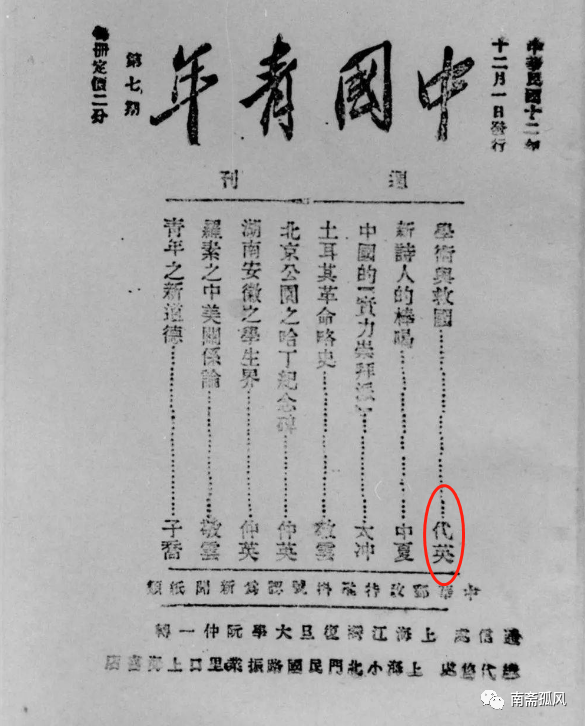 中華民國十二年
十二月一日發行
中國青年
第七期
每冊定價二分
週刊
學術與救國………代英
新詩人的棒喝………中夏
中國的「實力崇拜派」………太冲
土耳其革命略史………敬雲
北京公園之哈丁紀念碑………仲英
湖南安徽之學生界………仲英
羅素之中美關係論………敬雲
青年之新道德………子喬
中華郵政特准掛號認爲新聞紙類
通信處 上海江灣復旦大學阮仲一轉
總代售處 上海小北門民國路振業里口上海書店
南斋孤风